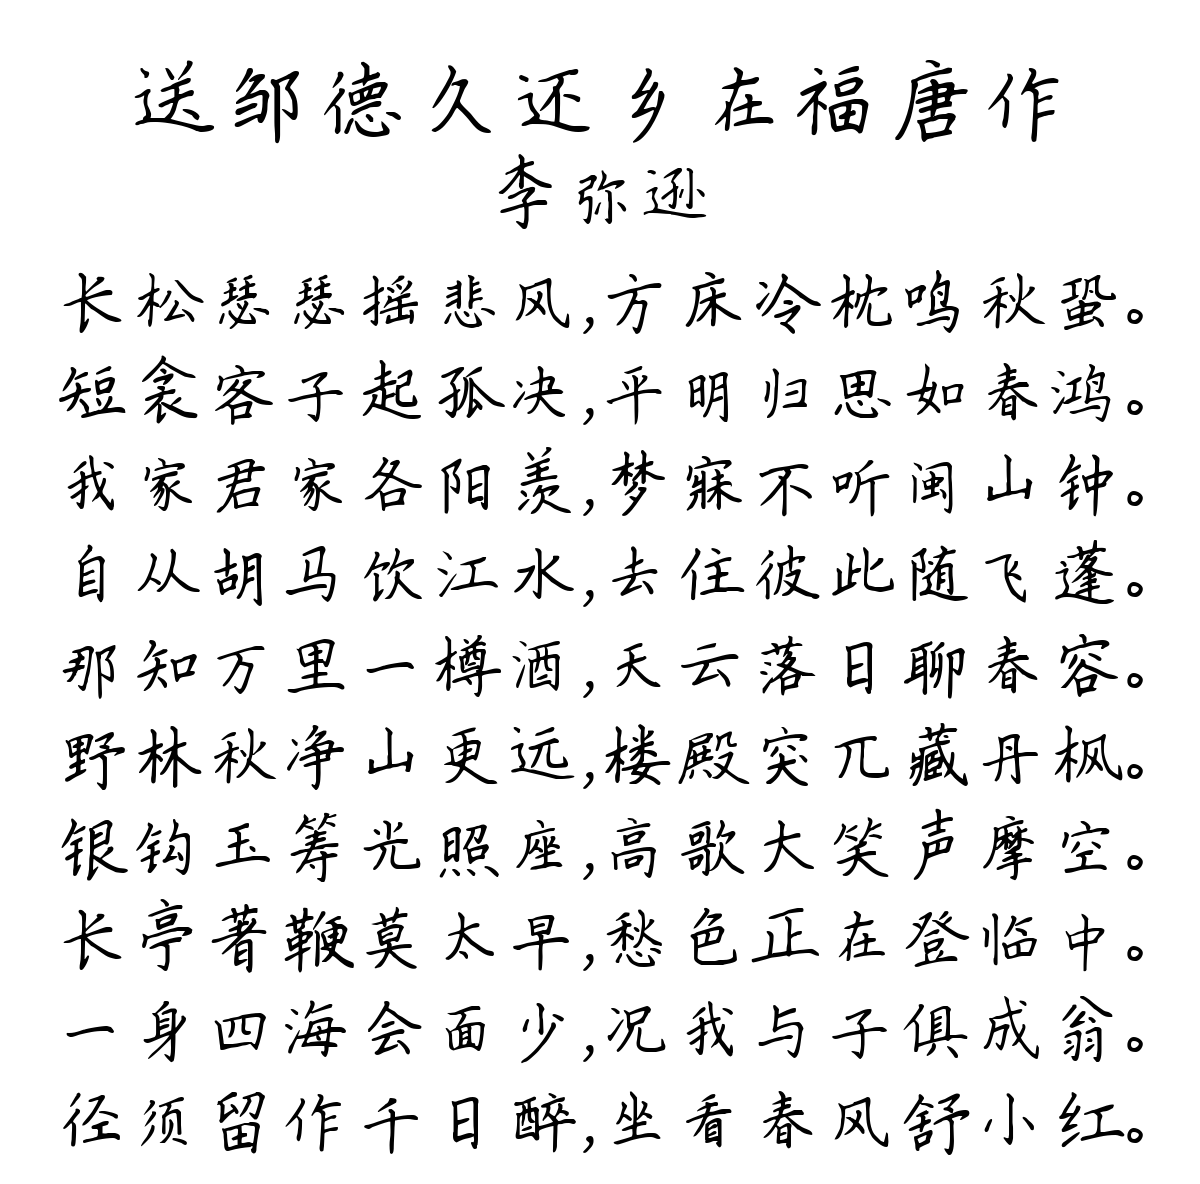 送邹德久还乡在福唐作
李弥逊
长松瑟瑟摇悲风,方床冷枕鸣秋蛩。
短衾客子起孤决,平明归思如春鸿。
我家君家各阳羡,梦寐不听闽山钟。
自从胡马饮江水,去住彼此随飞蓬。
那知万里一樽酒,天云落日聊春容。
野林秋净山更远,楼殿突兀藏丹枫。
银钩玉筹光照座,高歌大笑声摩空。
长亭著鞭莫太早,愁色正在登临中。
一身四海会面少,况我与子俱成翁。
径须留作千日醉,坐看春风舒小红。